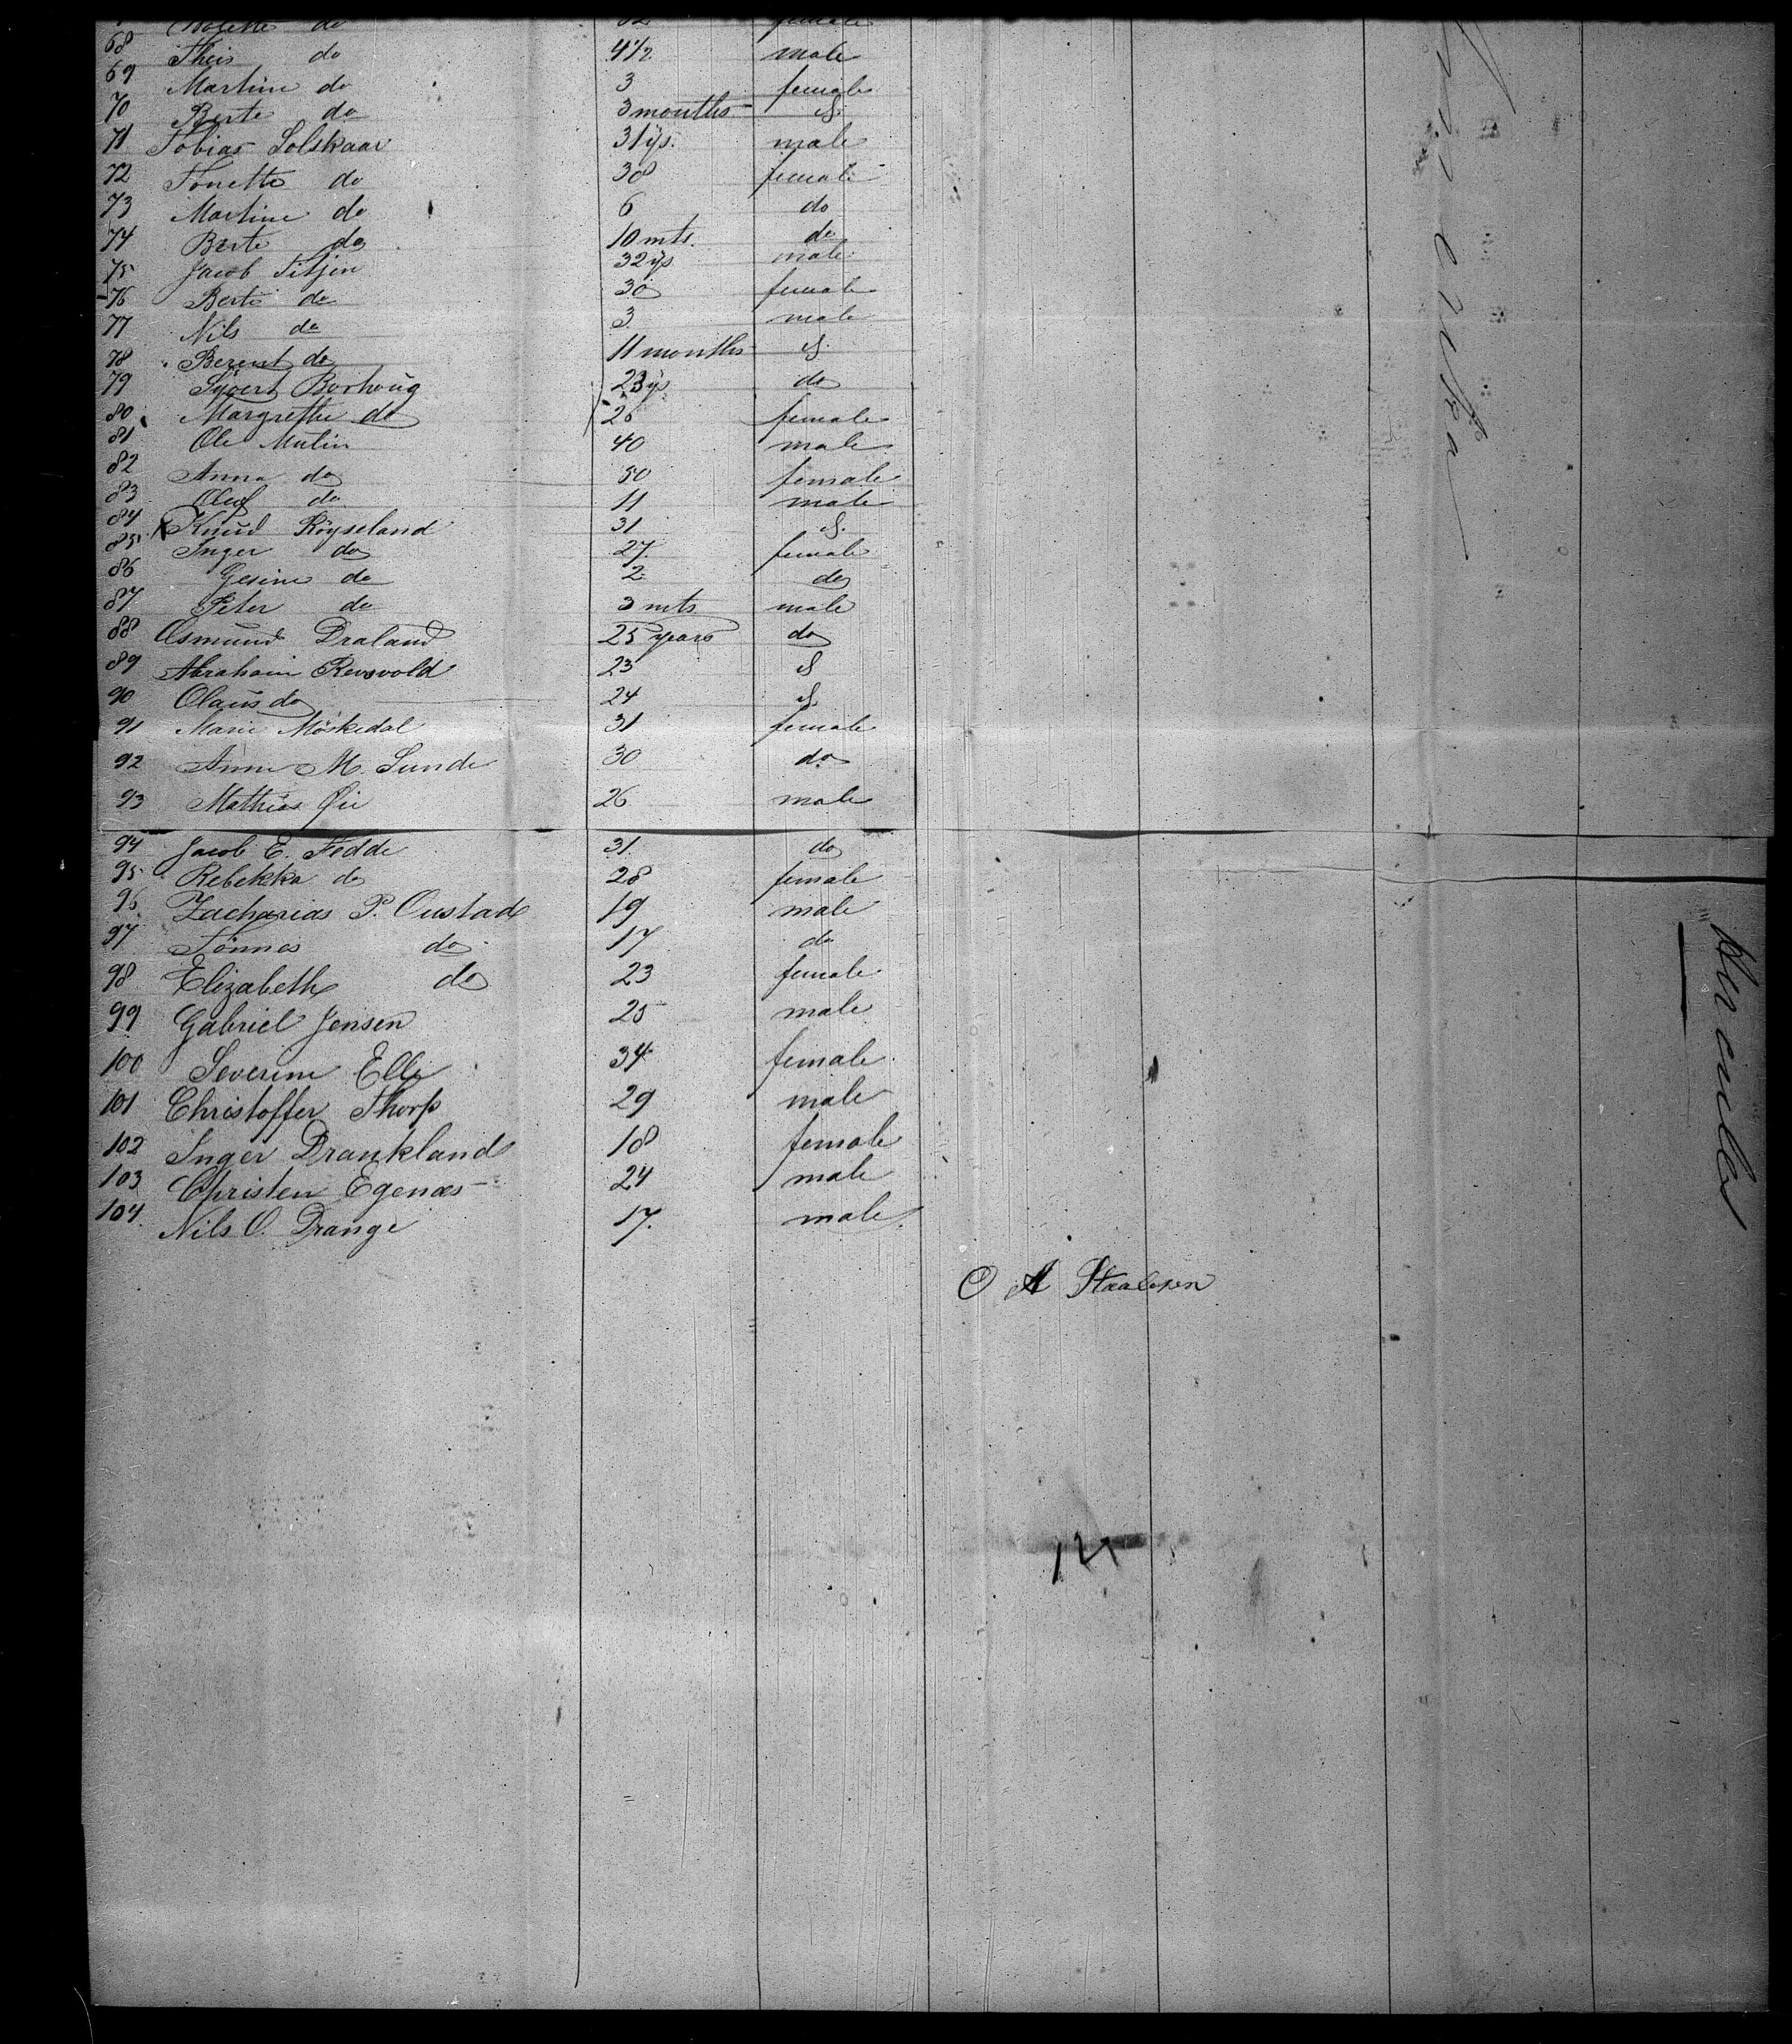 68 Theis do 4 1/2 male
69 Martine do 3 female
70 Berte do 3 months d.
71 Tobias Solskaar 31 ys. male
72 Tonette do 38 female
73 Martine do 6 do
74 Berte do 10 mts. do
75 Jacob Titjen 32 ys male
76 Berte do 30 female
77 Nils do 3 male
78 Berent do 11 months d.
79 Syvert Borhoug 23 ys do
80 Margrethe do female
81 Ole Mulin 40 male
82 Anna do 50 female
83 Oluf do 11 male
84 Knud Röyseland 31 d.
85 Inger do 27. female
86 Gesine do 2 do
87 Peter do 3 mts male
88 Osmund Draland 25 years do
89 Abraham Rewvold 23 d
90 Olaus do 24 d.
91 Marie Möskedal 31 female
92 Anne M. Sunde 30 do
93 Mathias Öie 26 male
94 Jacob E. Fedde 31 do
95 Rebekka do 28 female
96 Zacharias P. Oustad 19 male
97 Tönnes do 17 do
98 Elizabeth do 23 female
99 Gabriel Jensen 25 male
100 Severine Elle 34 female
101 Christoffer Thorp 29 male
102 Inger Drankland 18 female
103 Christen Egenæs 24 male
104 Nils O. Drange 17. male
O A Staalesen
Hercules